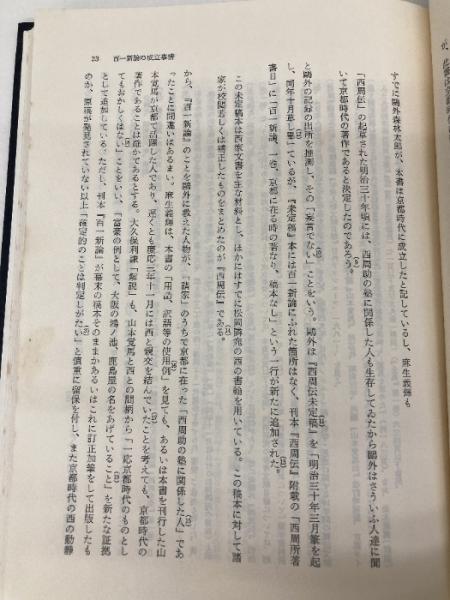 23　百一新論の成立事情
すでに鷗外森林太郎が、本書は京都時代に成立したと記しているし、麻生義輝も
「西周伝」の起草された明治三十年頃には、西周助の塾に関係した人も生存してゐたから鷗外はさういふ人達に聞
いて京都時代の著作であると決定したのであらう。
と鷗外の記録の出所を推測し、その「妄言でない」ことをいう。鷗外は『西周伝未定稿』を「明治三十年三月筆を起
し、同年十月畢し畢」ているが、『未定稿』本には百一新論にふれた箇所はなく、刊本『西周伝』附載の「西周所著
書目」に「百一新論、一巻、京都に在る時の著なり、稿本なし」という一行が新たに追加された。
この未定稿本は西家文書を主な材料とし、ほかにはすでに松岡隣宛の西の書翰を用いている。この稿本に対して諸
家が校閲若しくは補正したものをまとめたのが『西周伝』である。
から、『百一新論』のことを鷗外に教えた人物が、「諸家」のうちで京都に在った「西周助の塾に関係した人」であ
ったことに間違いはあるまい。麻生義輝は、本書の「用語、訳語等の使用例」を見ても、あるいは本書を刊行した山
本覚馬が京都で活躍した人であり、遅くとも慶応三年十一月には西と親交を結んでいたことを考えても、京都時代の
著作であることは確かであるとする。大久保利謙「解説」も、山本覚馬と西との間柄から「一応京都時代のものとし
てもおかしくはない」ことをいい、「富豪の例として、大阪の鴻ノ池、鹿島屋の名をあげていること」を新たな証拠
として追加している。ただし、刊本『百一新論』が幕末の稿本そのままかあるいはこれに訂正加筆をして出版したも
のか、原稿が発見されていない以上「確定的のことは判定しがたい」と慎重に留保を付し、また京都時代の西の動静